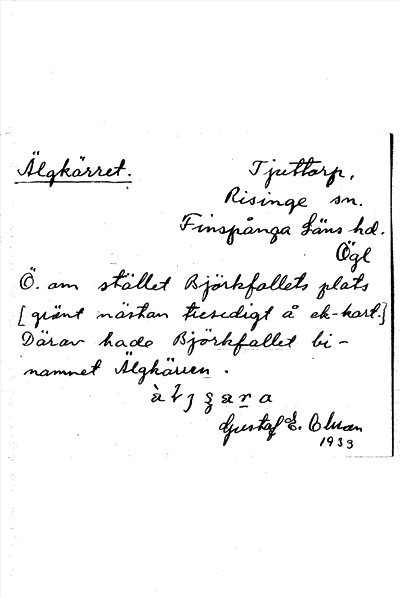 Älgkärret. Tjuttorp,
Risinge sn.
Finspånga Läns hd.
Ögl
Ö. om stället Björkfallets plats
[grönt nästan tresedigt å ek-kart.]
Därav hade Björkfallet bi-
namnet Älgkärren.
Gustaf E. Olsson
1933